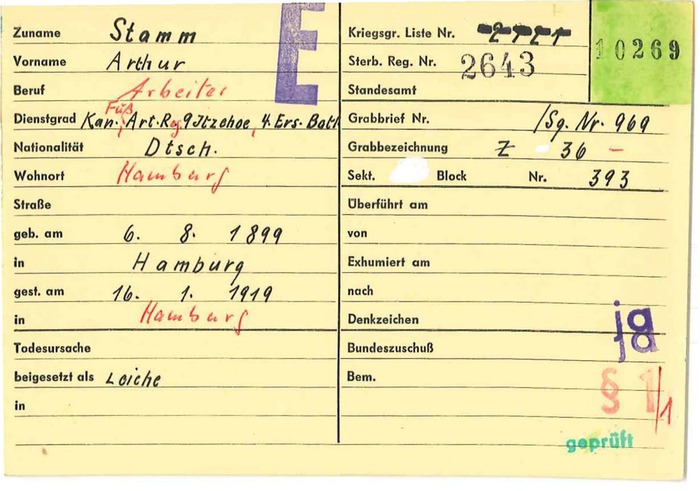 Zuname Stamm
Vorname Arthur
Beruf Arbeiter
Fuß
Dienstgrad Kan. Art. Reg. 9 Itzehoe, 4. Ers-Batl
Nationalität Dtsch.
Wohnort Hamburg
Straße
geb. am 6. 8. 1899
in Hamburg
gest. am 16. 1. 1919
in Hamburg
Todesursache
beigesetzt als Leiche
in
E
Kriegsgr. Liste Nr.
Sterb. Reg. Nr. 2643
10269
Standesamt
Grabbrief Nr. /Sg. Nr. 969
Grabbezeichnung Z 36 -
Sekt. Block Nr. 393
Überführt am
von
Exhumiert am
nach
Denkzeichen ja
Bundeszuschuß ja
Bem. § 1/1
geprüft